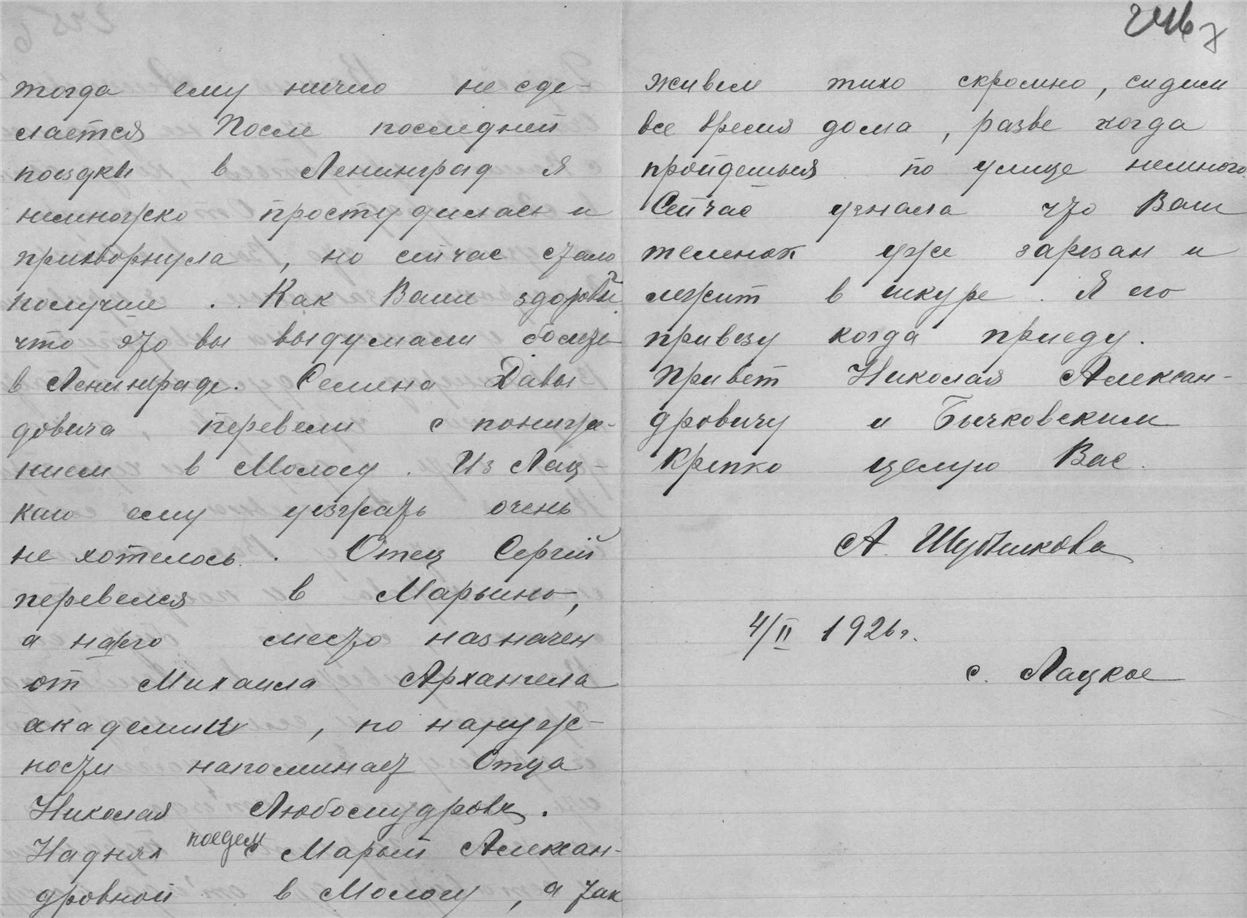 246
тогда ему ничего не сде-
лается После последней
поездки в Ленинград я
немножко простудилась и
прихворнула, но сейчас стало
получше. Как Ваше здоровье
что это вы выдумали болеть
в Ленинграде. Семена Давы
довича, перевели с пониже-
нием в Мологу. Из Лац-
кого ему уезжать очень
не хотелось. Отец Сергий
перевелся в Марьино,
а на его место назначен
от Михаила Архангела
академик, по наруж-
ности напоминает Отца
Николая Любомудрова.
Наднях поедем с Марьей Алексан-
дровной в Мологу, а так
живем тихо скромно, сидим
все время дома, разве когда
пройдешься по улице немного
Сейчас узнала что Ваш
теленок уже зарезан и
лежит в шкуре. Я его
привезу когда приеду.
Привет Николаю Алексан-
дровичу и Бычковским
Крепко целую Вас.
А. Шубникова
4/II 1926 г.
с. Лацкое